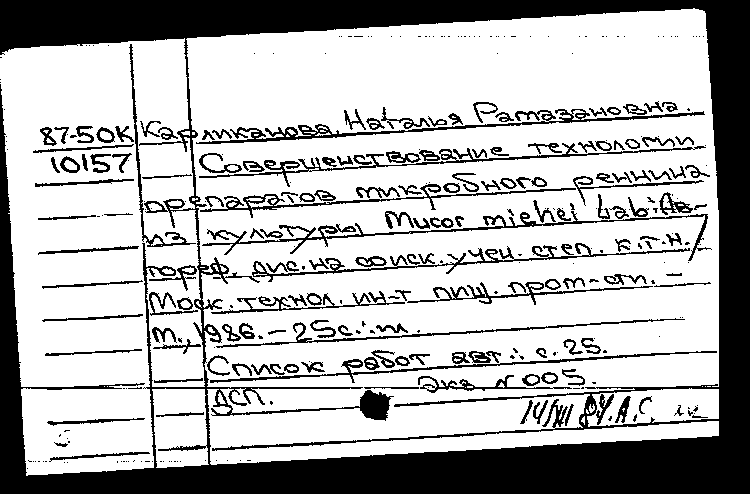 87-50К Карликанова, Наталья Рамазановна.
10157 Совершенствование технологии
препаратов микробного реннина
из культуры Mucor miehei Lab: Ав-
тореф. дис. на соиск. учен. степ. к.т.н./
Моск. технол. ин-т пищ. пром-сти. -
М., 1986. - 25с.: ил.
Список работ авт.: с. 25.
ДСП. Экз. N 005.
14/VII